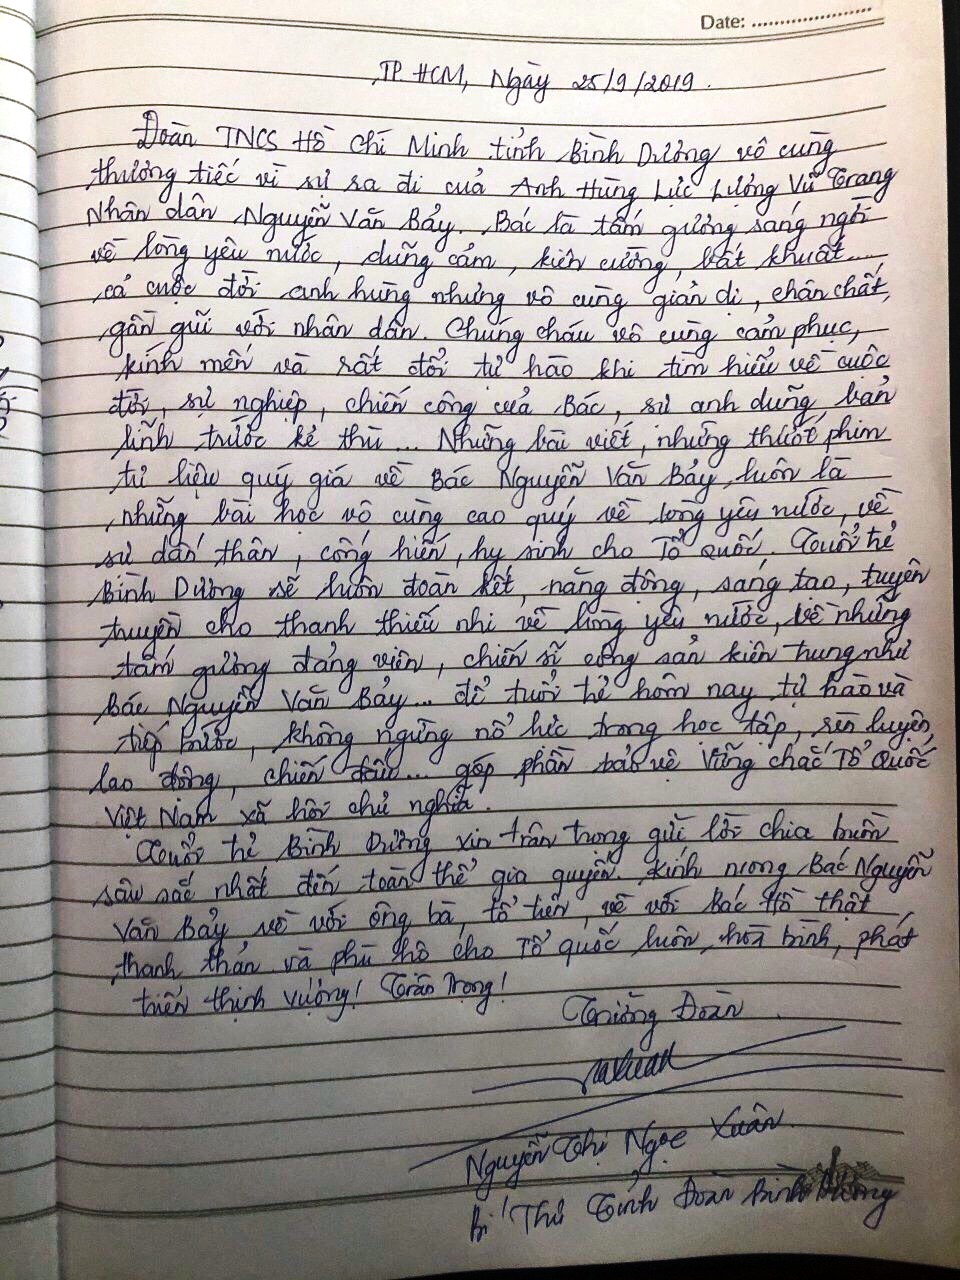 Date: ....................
TP HCM, Ngày 25/9/2019.
Đoàn TNCS Hồ Chí Minh tỉnh Bình Dương vô cùng
thương tiếc vì sự ra đi của Anh Hùng Lực Lượng Vũ Trang
Nhân dân Nguyễn Văn Bảy. Bác là tấm gương sáng ngời
về lòng yêu nước, dũng cảm, kiên cường, bất khuất...
cả cuộc đời anh hùng nhưng vô cùng giản dị, chân chất,
gần gũi với nhân dân. Chúng cháu vô cùng cảm phục,
kính mến và rất đỗi tự hào khi tìm hiểu về cuộc
đời, sự nghiệp, chiến công của Bác, sự anh dũng bản
lĩnh trước kẻ thù... Những bài viết, những thướt phim
tư liệu quý giá về Bác Nguyễn Văn Bảy luôn là
những bài học vô cùng cao quý về lòng yêu nước, về
sự dấn thân, cống hiến, hy sinh cho Tổ Quốc. Tuổi trẻ
Bình Dương sẽ luôn đoàn kết, năng động, sáng tạo, tuyên
truyền cho thanh thiếu nhi về lòng yêu nước, về những
tấm gương đảng viên, chiến sĩ cộng sản kiên trung như
Bác Nguyễn Văn Bảy... để tuổi trẻ hôm nay tự hào và
tiếp bước, không ngừng nổ lực trong học tập, rèn luyện,
lao động, chiến đấu... góp phần bảo vệ Vững chắc Tổ Quốc
Việt Nam xã hội chủ nghĩa.
Tuổi trẻ Bình Dương xin trân trọng gửi lời chia buồn
sâu sắc nhất đến toàn thể gia quyến. Kính mong Bác Nguyễn
Văn Bảy về với ông bà, tổ tiên, về với Bác Hồ thật
thanh thản và phù hộ cho Tổ quốc luôn hòa bình, phát
triển thịnh vượng! Trân Trọng!
Trưởng Đoàn
Nguyễn Thị Ngọc Xuân
Bí Thư Tỉnh Đoàn Bình Dương